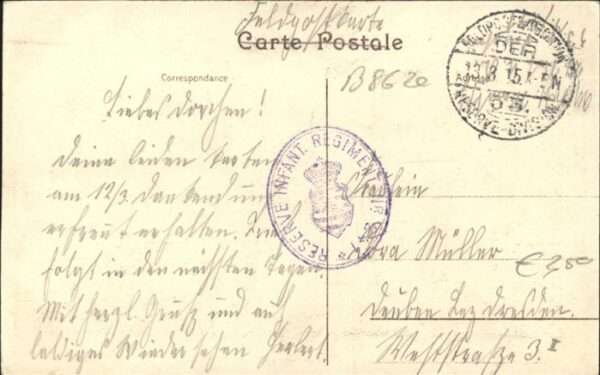 Feldpostkarte
Carte Postale
Correspondance
B862e
FELDPOSTEXPEDITION
DER
13.3 15. 5-6N
53.
RESERVE-DIVISION
RESERVE INFANT. REGIMENT
Liebes Dorchen!
Deine beiden Karten
am 12/3 dankend und
erfreut erhalten. Brief
folgt in den nächsten Tagen.
Mit herzl. Gruß und auf
baldiges Wiedersehen Herbert.
Fräulein
Dora Müller
Deuben Bez Dresden.
Weststrasse 3. II
€ 3,50